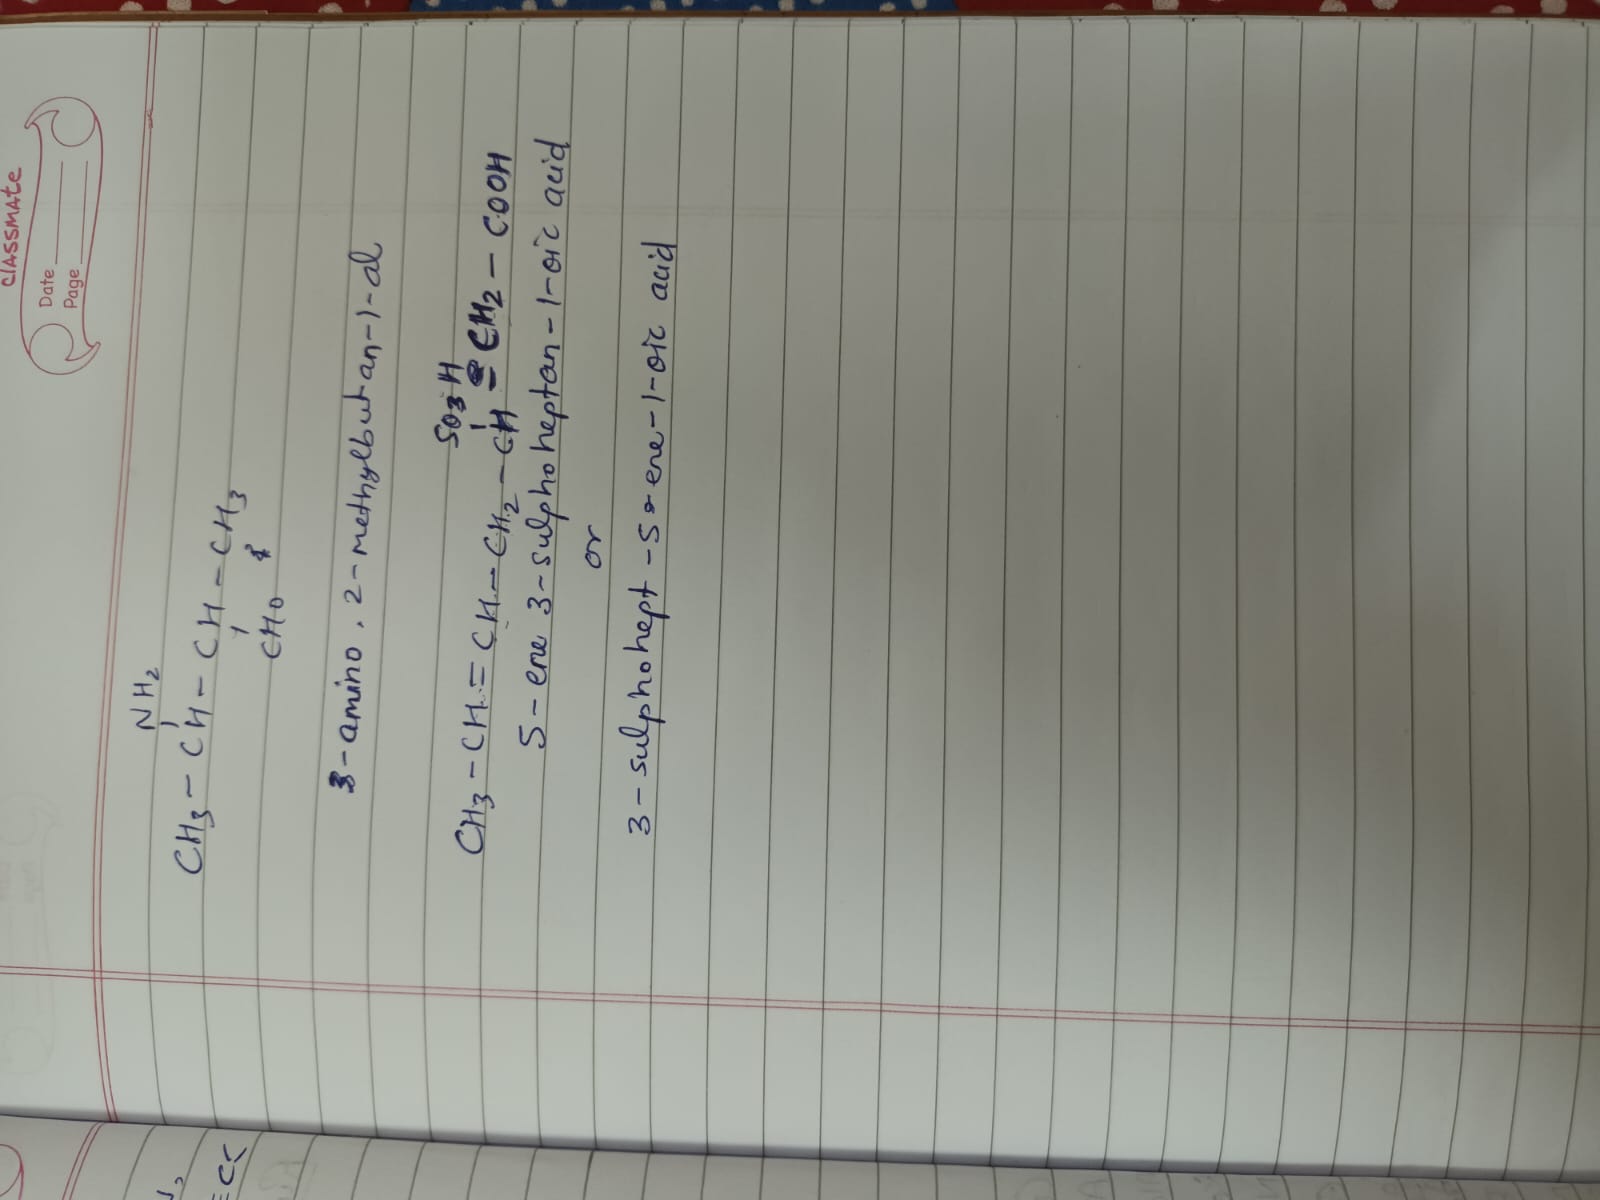 classmate
Date
Page
NH2
CH3 - CH - CH - CH3
CHO
3-amino, 2-methylbutan-1-al
SO3H
CH3 - CH = CH - CH2 - CH - CH2 - COOH
5-ene 3-sulphoheptan-1-oic acid
or
3-sulphohept-5-ene-1-oic acid